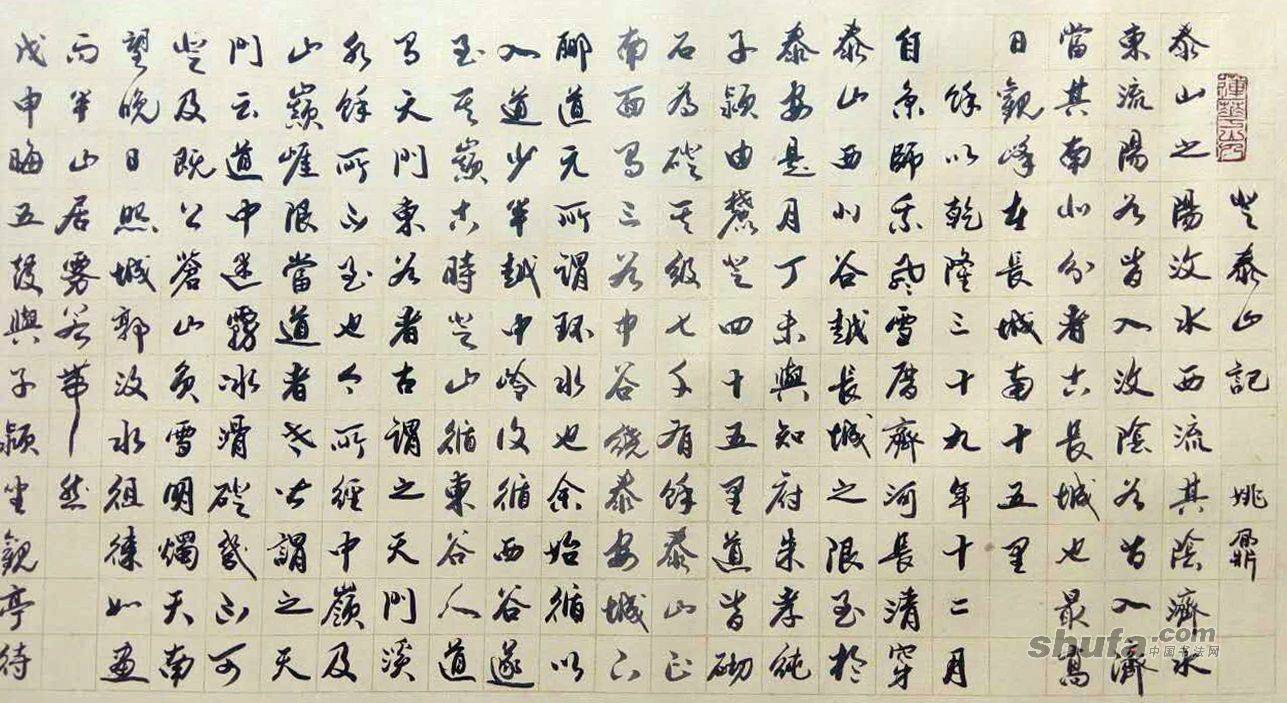 登泰山記 姚鼐
泰山之陽汶水西流其陰濟水
東流陽谷皆入汶陰谷皆入濟
當其南北分者古長城也最高
日觀峰在長城南十五里
餘以乾隆三十九年十二月
自京師乘風雪歷齊河長清穿
泰山西北谷越長城之限至於
泰安是月丁未與知府朱孝純
子潁由麓登四十五里道皆砌
石為磴其級七千有餘泰山正
南面有三谷中谷繞泰安城下
酈道元所謂環水也余始循以
入道少半越中岭復循西谷遂
至其巔古時登山循東谷入道
有天門東谷者古謂之天門溪
水餘所不至也今所經中嶺及
山巔崖限當道者世皆謂之天
門云道中迷霧冰滑磴幾不可
登及既上蒼山負雪明燭天南
望晚日照城郭汶水徂徠如畫
而半山居霧若帶然
戊申晦五鼓與子潁坐觀亭待
shufa.com
中国书法网